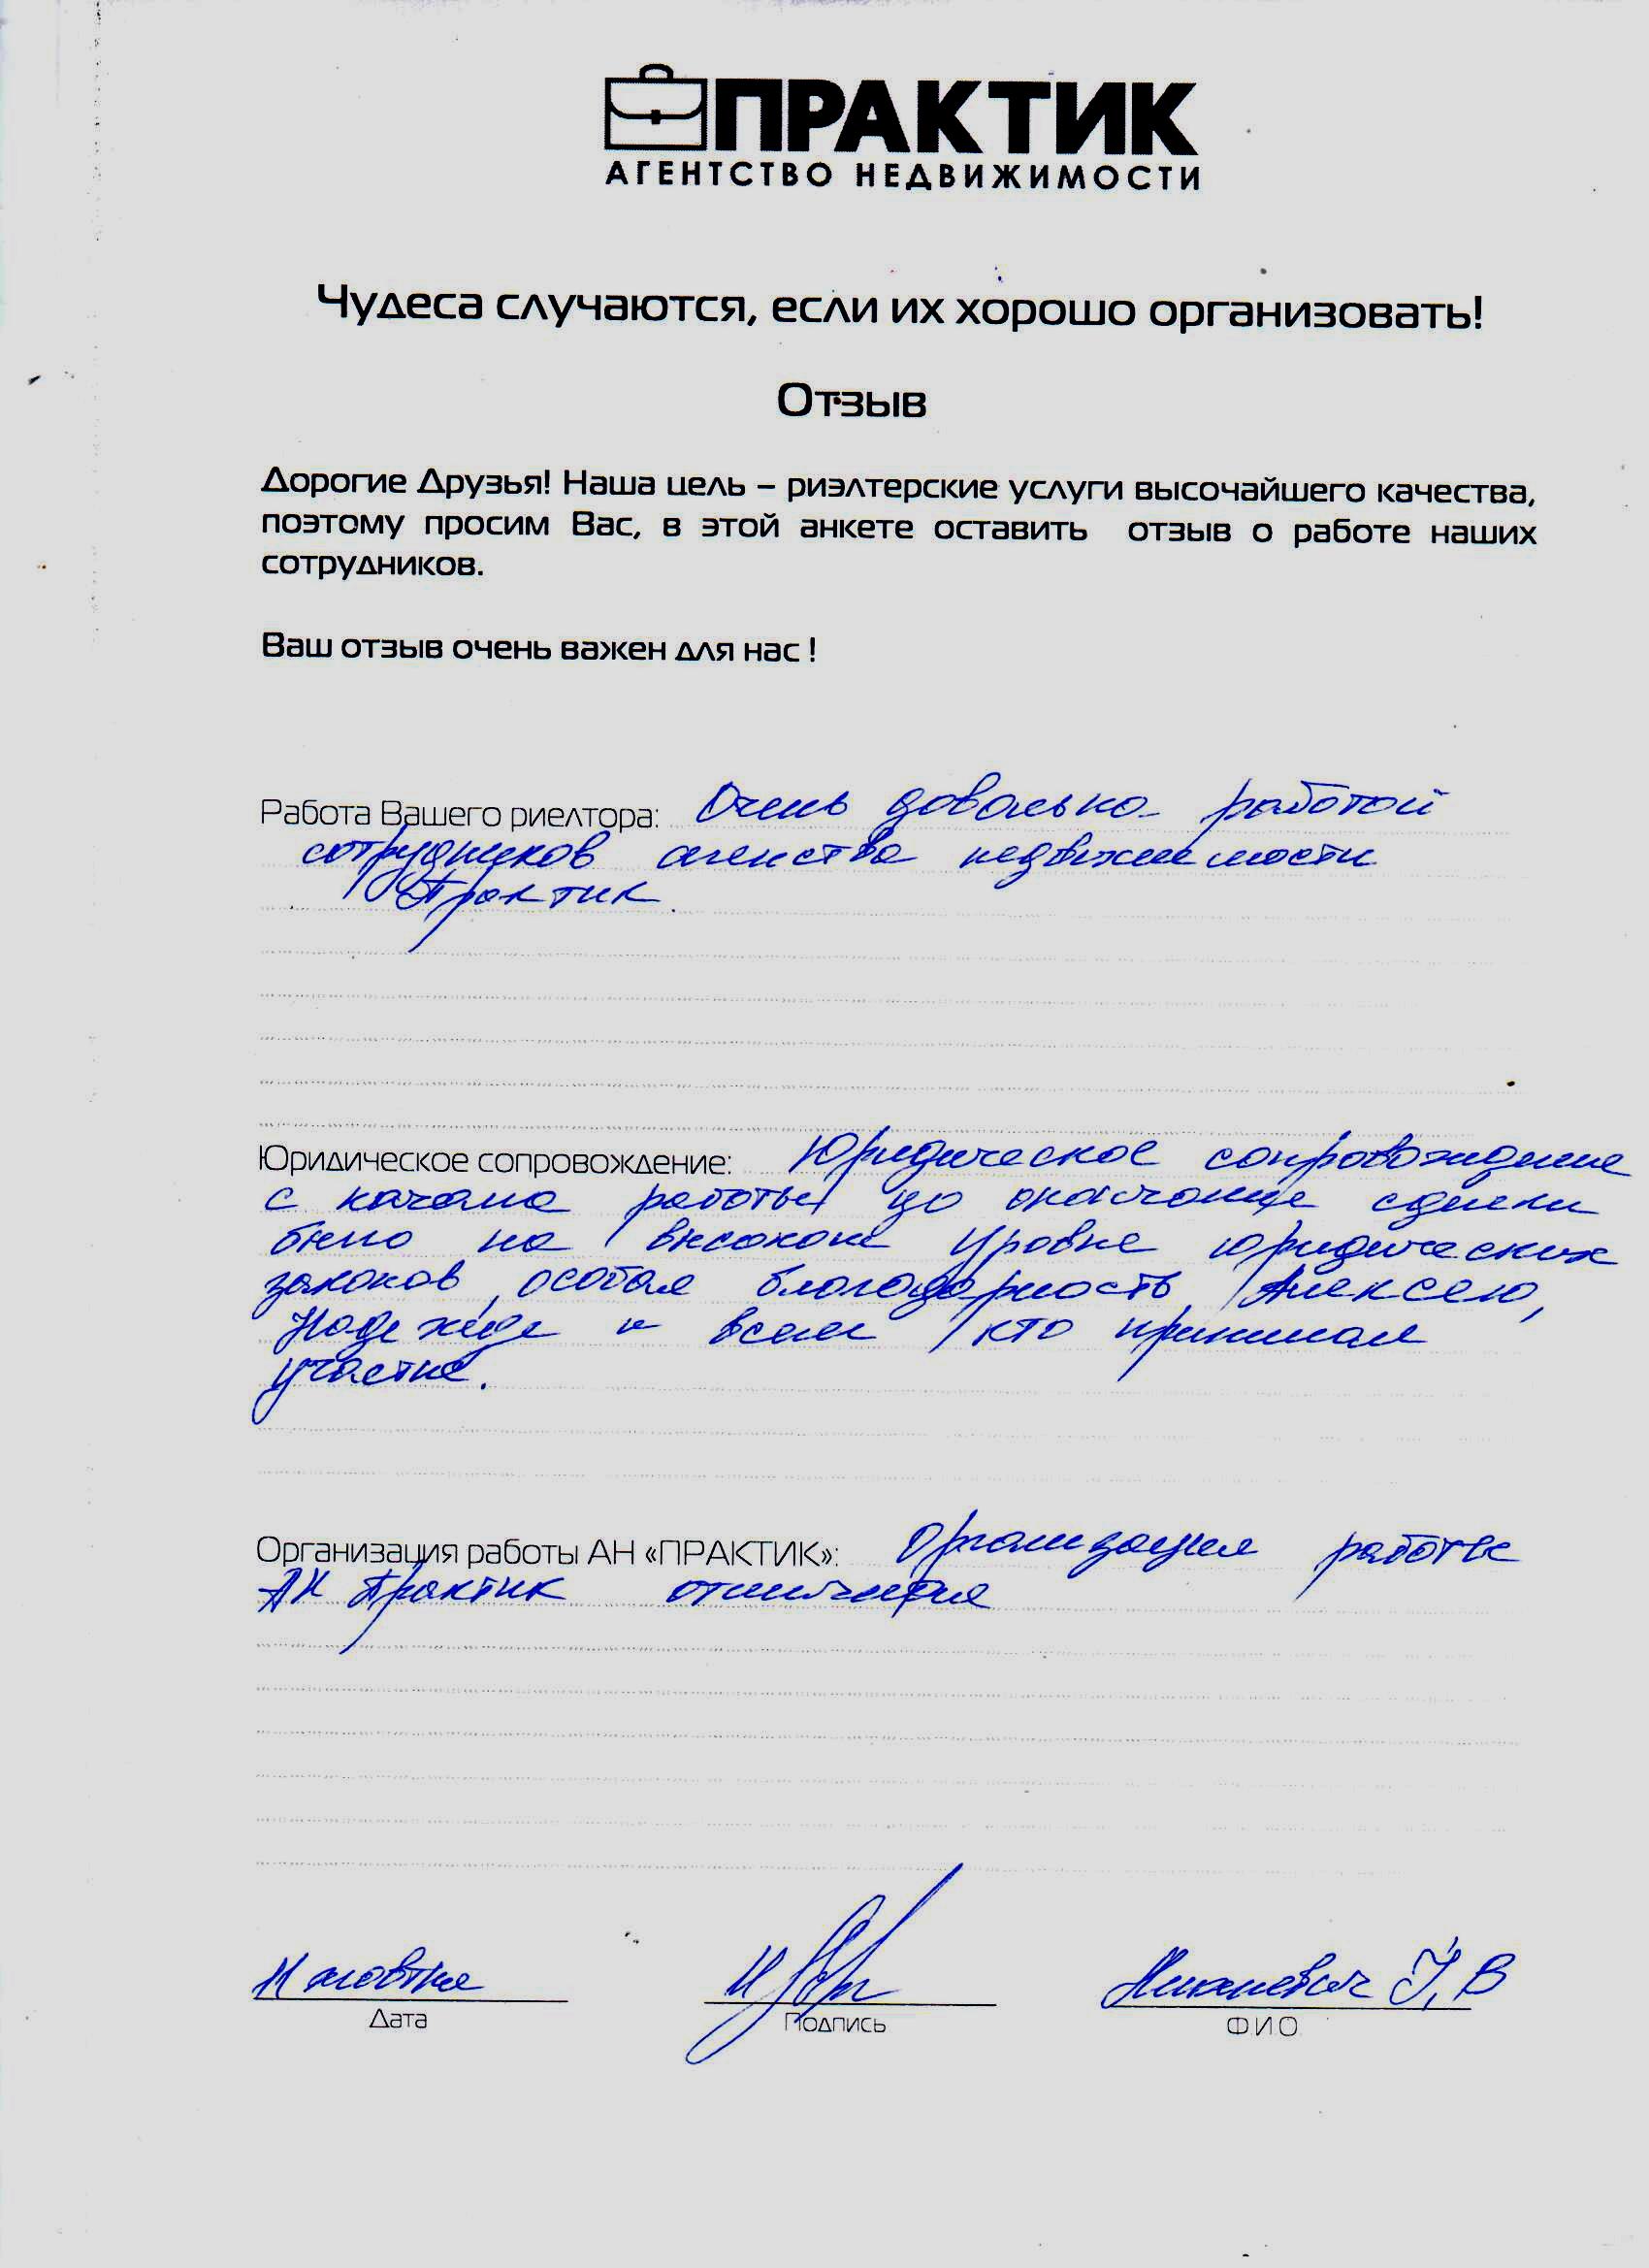 ПРАКТИК
АГЕНТСТВО НЕДВИЖИМОСТИ
Чудеса случаются, если их хорошо организовать!
Отзыв
Дорогие Друзья! Наша цель – риэлтерские услуги высочайшего качества,
поэтому просим Вас, в этой анкете оставить отзыв о работе наших
сотрудников.
Ваш отзыв очень важен для нас !
Работа Вашего риелтора: Очень довольна работой
сотрудников агенства недвижимости
Практик.
Юридическое сопровождение: Юридическое сопровождение
с начала работы до окончание сделки
было на высоком уровне юридических
законов, особая благодарность Алексею,
Надежде и всем кто принимал
участие.
Организация работы АН «ПРАКТИК»: Организация работы
АН Практик отличная
11 жовтня
Дата
Подпись
У, В
ФИО